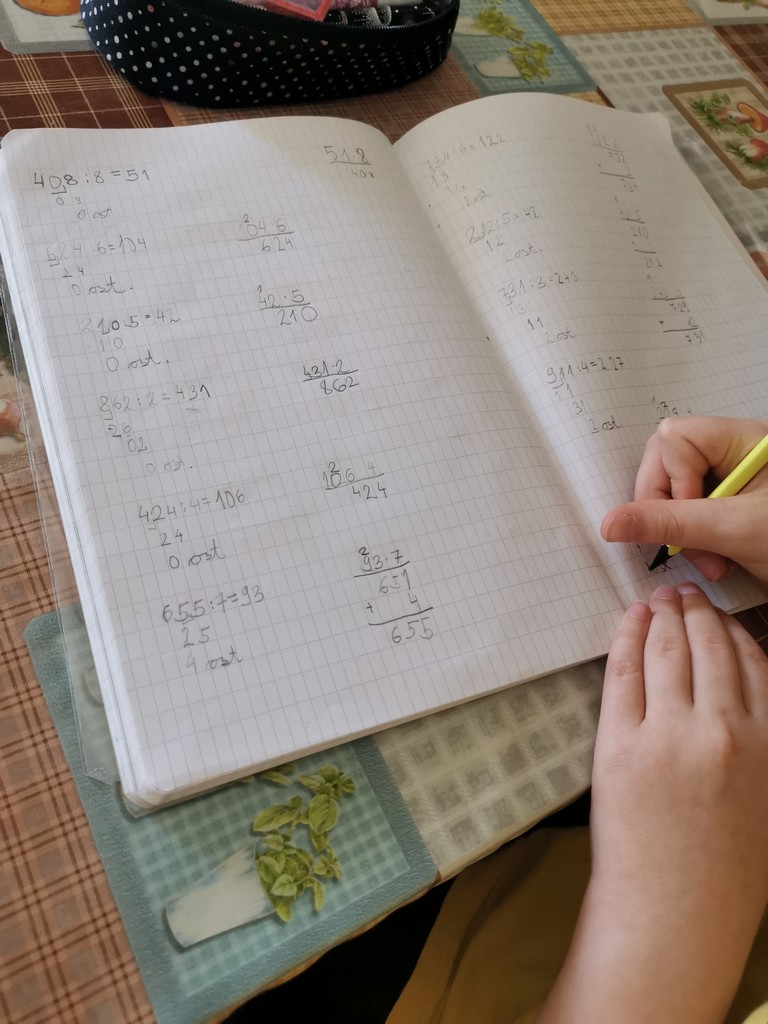 408:8=51
51·8
08
408
0 ost
624:6=104
104·6
24
624
0 ost.
210:5=42
42·5
10
210
0 ost.
862:2=431
431·2
26
862
02
0 ost.
424:4=106
106 4
24
424
0 ost
655:7=93
93·7
25
651
4 ost
+ 4
655
734:6=122
13
2 ost
212:5=42
12
2 ost.
212
731:3=243
13
729
11
+ 2
2 ost
731
911:4=227
11
31
3 ost